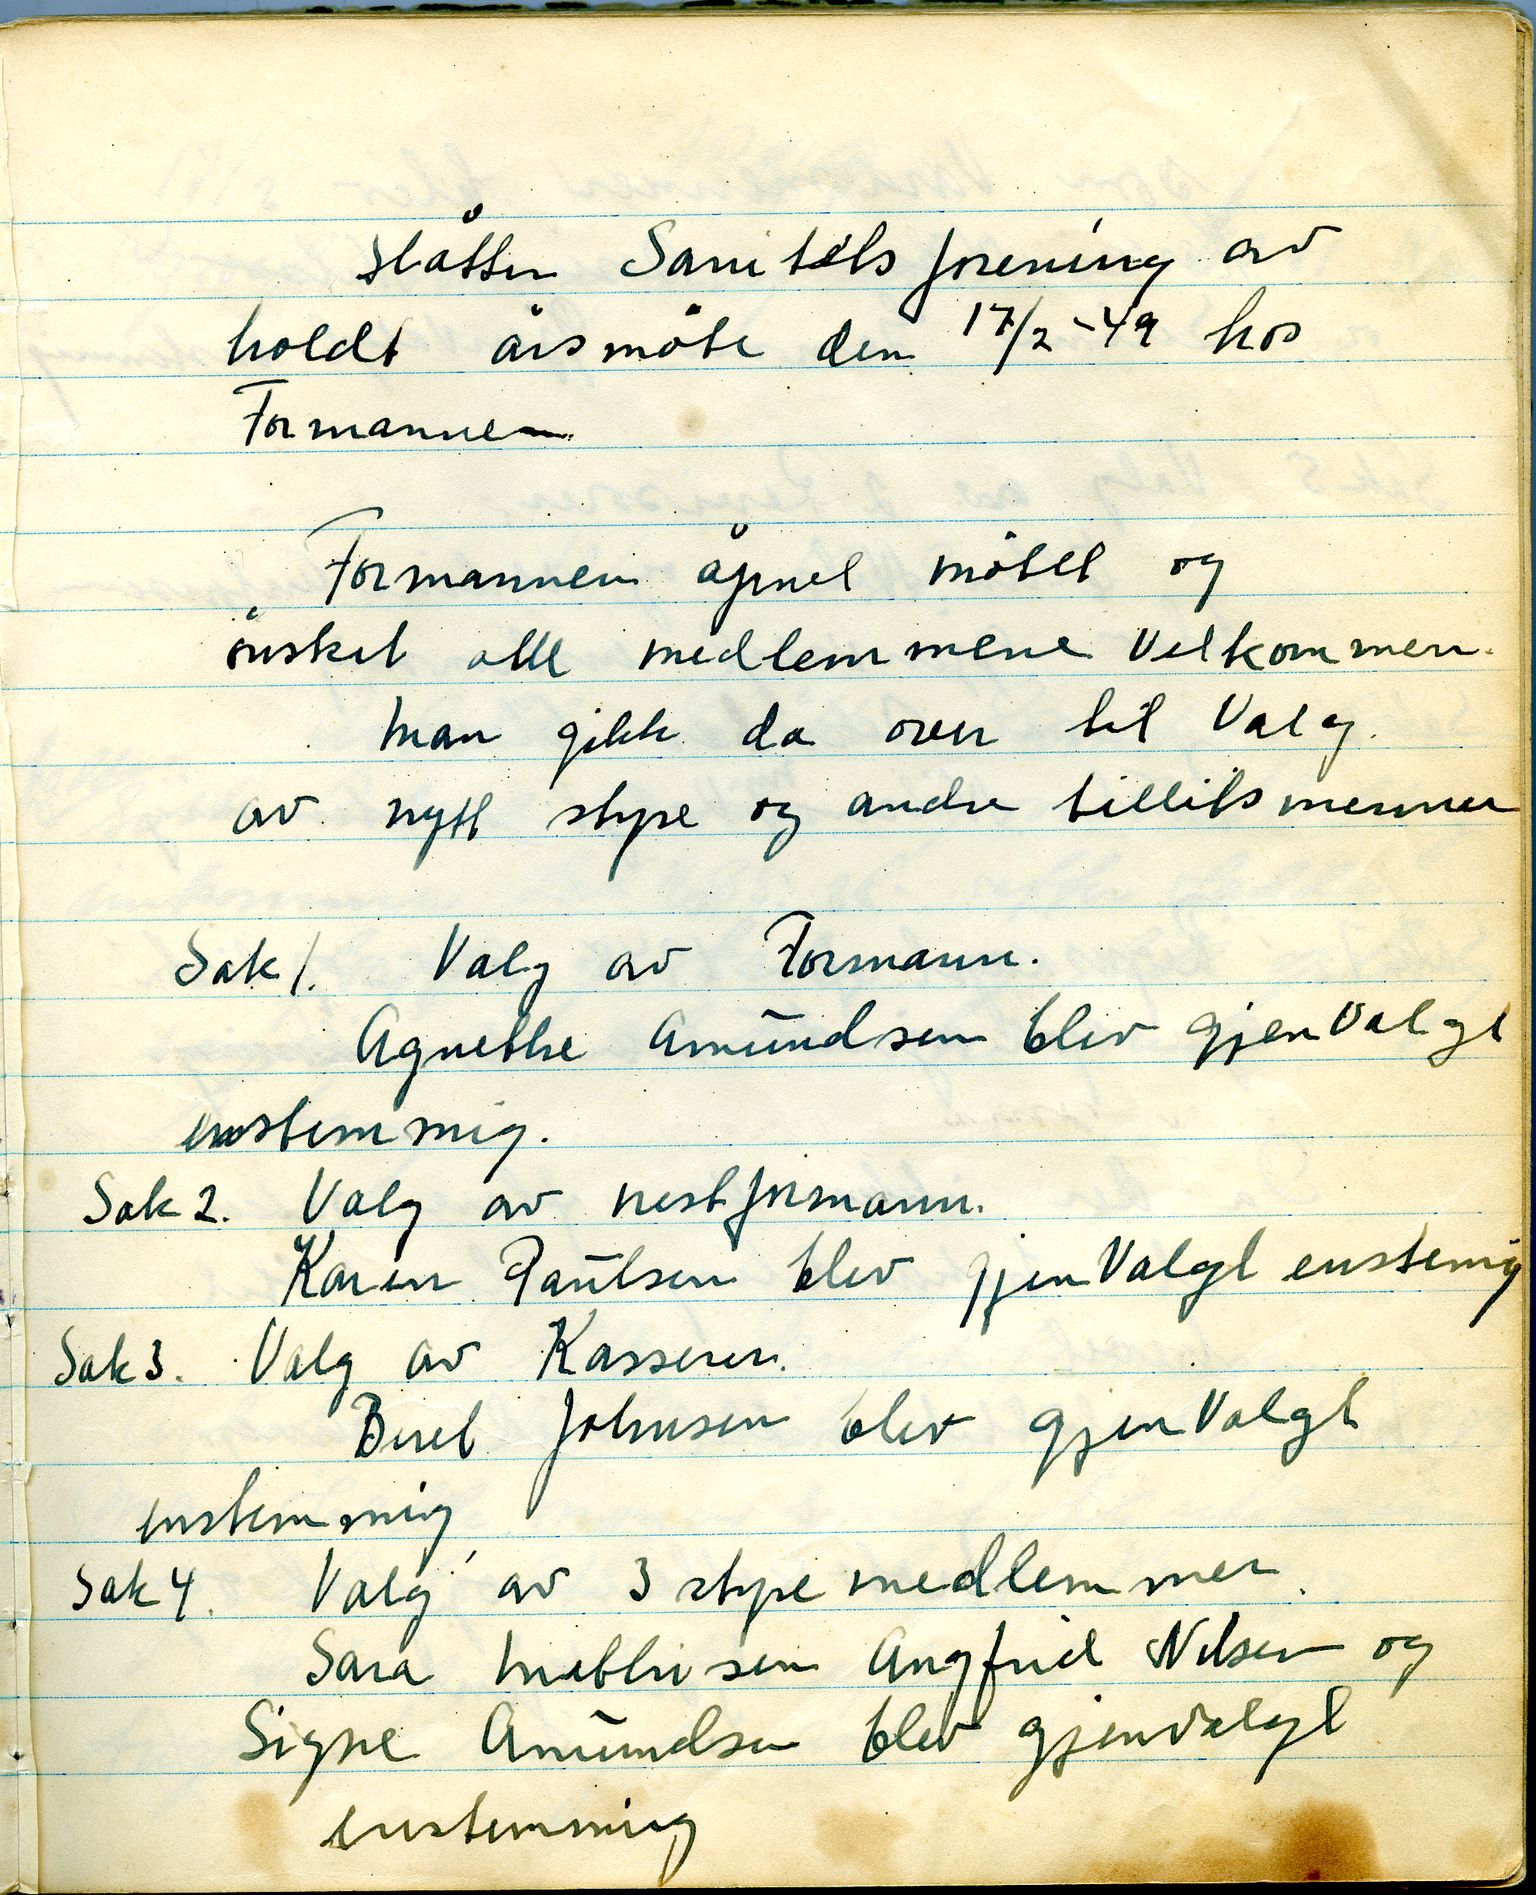 Slåtten Sanitetsforening av
holdt årsmöte den 17/2-49 hos
Formannen
Formannen åpnet mötet og
önsket alle medlemmene Velkommen.
Man gikk da over til Valg.
av nytt styre og andre tillitsmenner
Sak 1. Valg av Formann.
Agnethe Amundsen blev gjenValgt
enstemmig.
Sak 2. Valg av nestformann.
Karen Paulsen blev gjenValgt enstemig
Sak 3. Valg av Kasserer.
Beret Johnsen blev gjenValgt
enstemmig
Sak 4. Valg av 3 styremedlemmer.
Sara Mathisen Angfrid Nilsen og
Signe Amundsen blev gjenvalgt
enstemmig